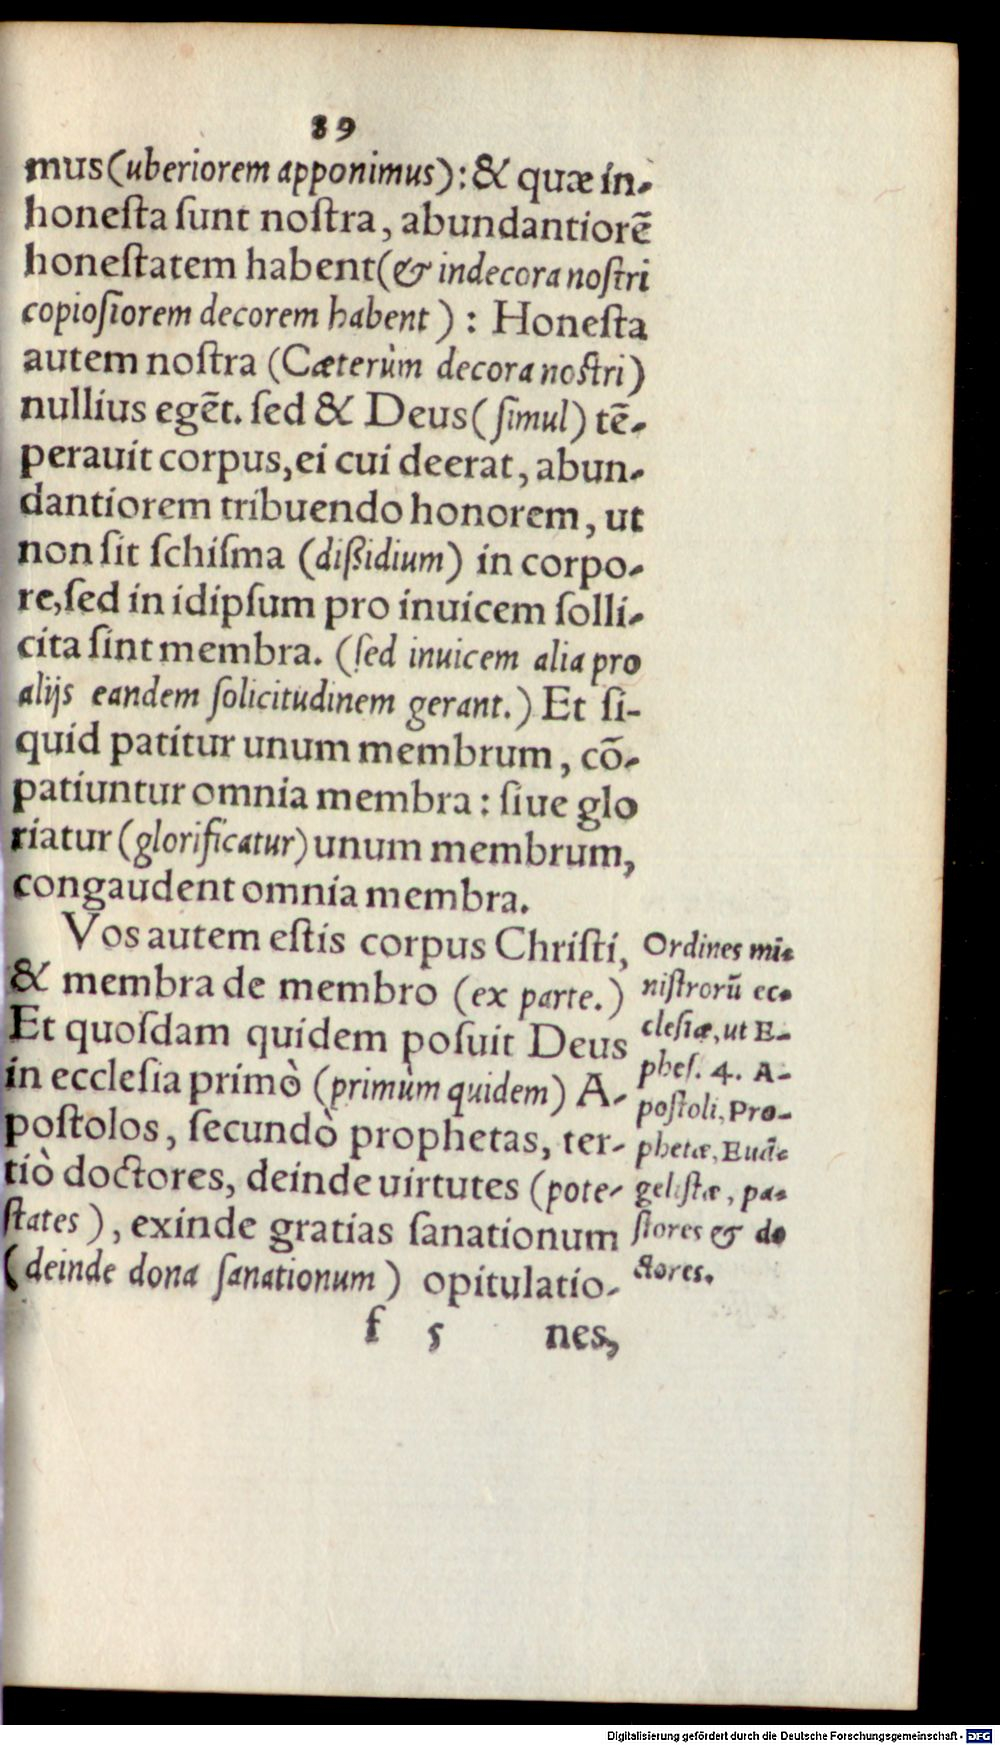 89
mus (uberiorem apponimus): & quæ in-
honesta sunt nostra, abundantiorē
honestatem habent (& indecora nostri
copiosiorem decorem habent) : Honesta
autem nostra (Cæterùm decora nostri)
nullius egēt. sed & Deus (simul) tē-
perauit corpus, ei cui deerat, abun-
dantiorem tribuendo honorem, ut
non sit schisma (dißidium) in corpo-
re, sed in idipsum pro inuicem solli-
cita sint membra. (sed inuicem alia pro
alijs eandem solicitudinem gerant.) Et si-
quid patitur unum membrum, cō-
patiuntur omnia membra : siue glo
riatur (glorificatur) unum membrum,
congaudent omnia membra.
Vos autem estis corpus Christi,
& membra de membro (ex parte.)
Et quosdam quidem posuit Deus
in ecclesia primò (primùm quidem) A-
postolos, secundò prophetas, ter-
tiò doctores, deinde uirtutes (pote-
states), exinde gratias sanationum
(deinde dona sanationum) opitulatio-
f 5 nes,
Ordines mi-
nistrorū ec-
clesiæ, ut E-
phes. 4. A-
postoli, Pro-
phetæ, Euā-
gelistæ, pa-
stores & do
ctores.
Digitalisierung gefördert durch die Deutsche Forschungsgemeinschaft - DFG